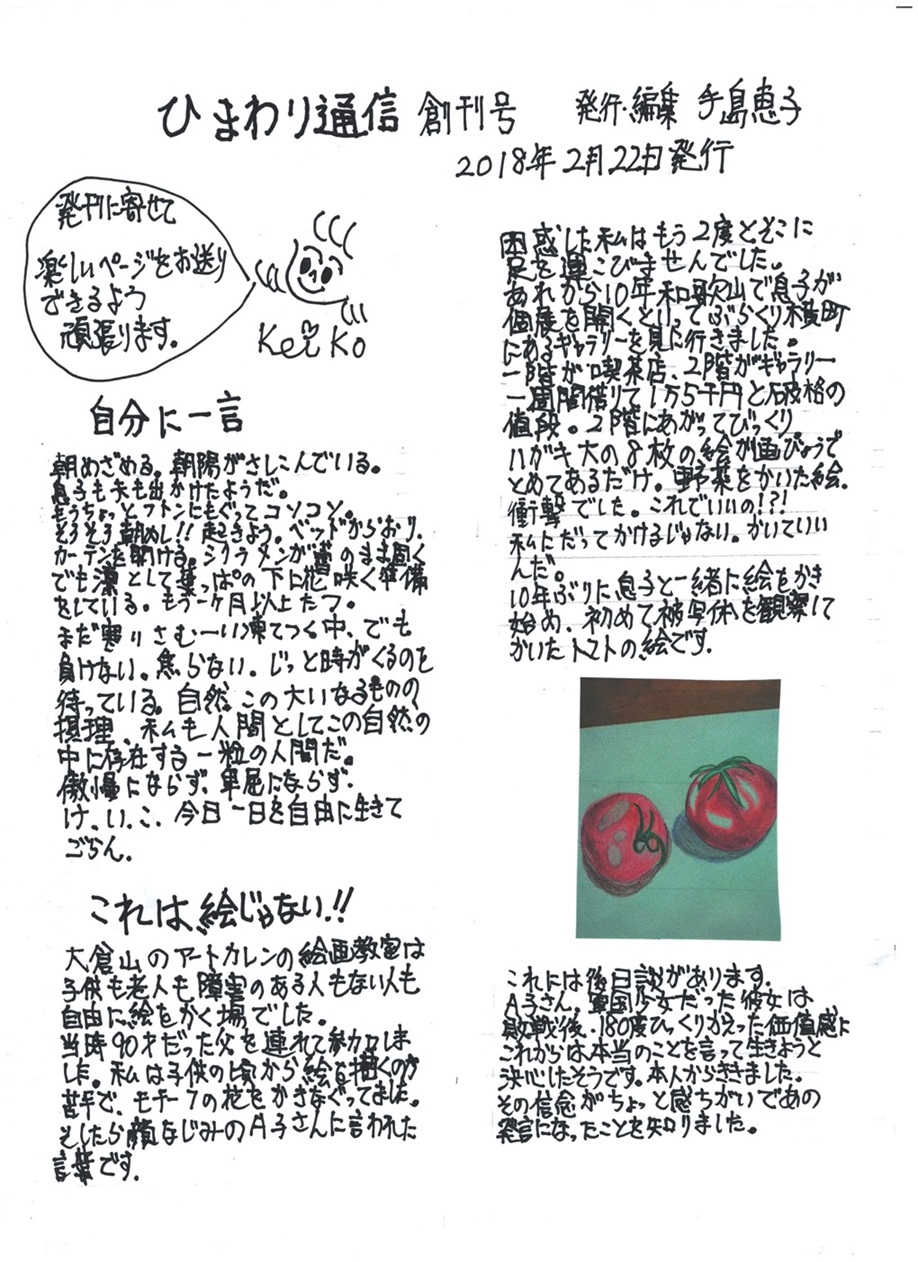 ひまわり通信 創刊号 発行・編集 手島恵子
2018年2月22日発行
発刊に寄せて
楽しいページをお送り
できるよう
頑張ります。
Keiko
自分に一言
朝めざめる。朝陽がさしこんでいる。
息子も夫も出かけたようだ。
もうちょっとフトンにもぐってコソコソ。
そろそろ朝めし!! 起きよう。ベッドからおり、
カーテンを開ける。シクラメンが蕾のまま固く
でも凛として葉っぱの下に花咲く準備
をしている。もう一ヶ月以上たつ。
まだ寒りさむーい凍てつく中、でも
負けない。焦らない。じっと時がくるのを
待っている。自然、この大いなるものの
摂理、私も人間としてこの自然の
中に存在する一粒の人間だ。
傲慢にならず、卑屈にならず、
け、い、こ、今日一日を自由に生きて
ごらん。
これは、絵じゃない!!
大倉山のアートカレンの絵画教室は
子供も老人も障害のある人もない人も
自由に絵をかく場でした。
当時90才だった父を連れて参加しま
した。私は子供の頃から絵を描くのが
苦手で、モチーフの花をかきなぐってました。
そしたら顔なじみのA子さんに言われた
言葉です。
困惑した私はもう2度とそこに
足を運こびませんでした。
あれから10年和歌山で息子が
個展を開くというてぶらくり木賀町
にあるギャラリーを見に行きました。
一階が喫茶店、2階がギャラリー
一週間借りて1万5千円と破格の
値段。2階にあがってびっくり
ハガキ大の8枚の絵が画びょうで
とめてあるだけ。野菜をかいた絵。
衝撃でした。これでいいの!?!
私にだってかけるじゃない。かいていい
んだ。
10年ぶりに息子と一緒に絵をかき
始め、初めて被写体を観察して
かいたトマトの絵です。
これには後日談があります。
A子さん、軍国少女だった彼女は
敗戦後、180度ひっくりかえった価値感に
これからは本当のことを言って生きようと
決心したそうです。本人からききました。
その信念がちょっと感ちがいであの
発言になったことを知りました。